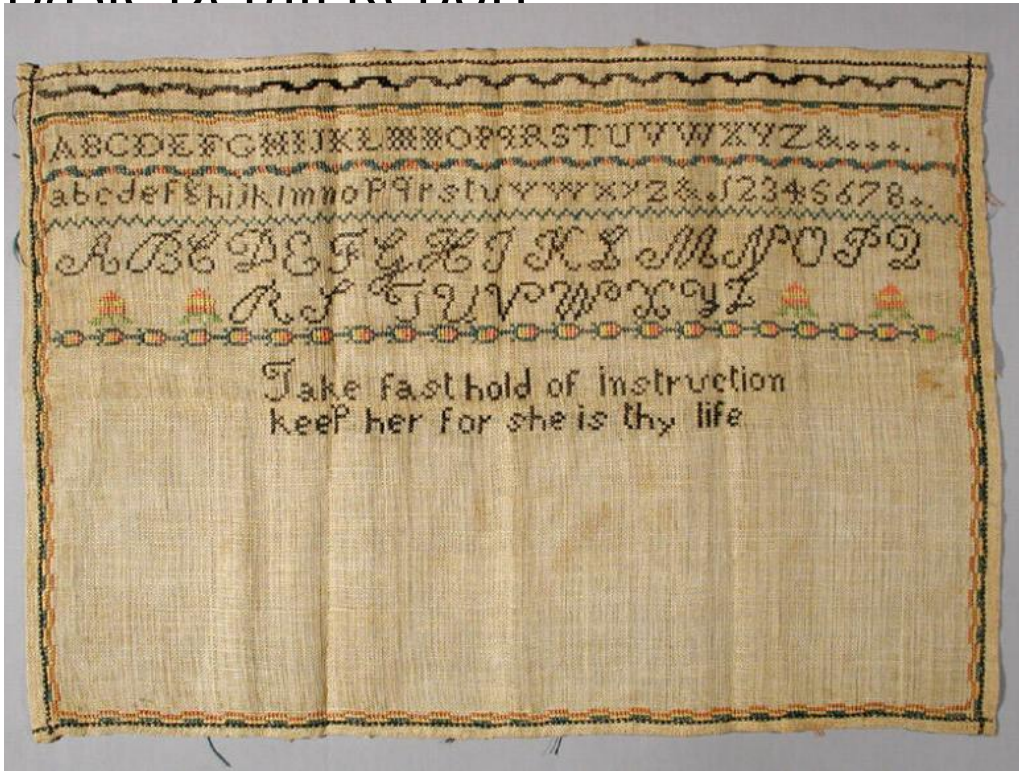 ABCDEFGHIJKLMNOPQRSTUVWXYZ&....
abcdefghijklmnopqrstuvwxyz&.12345678..
ABCDEFGHIKLMNOPQ
RSTUVWXYZ
Take fast hold of instruction
keep her for she is thy life